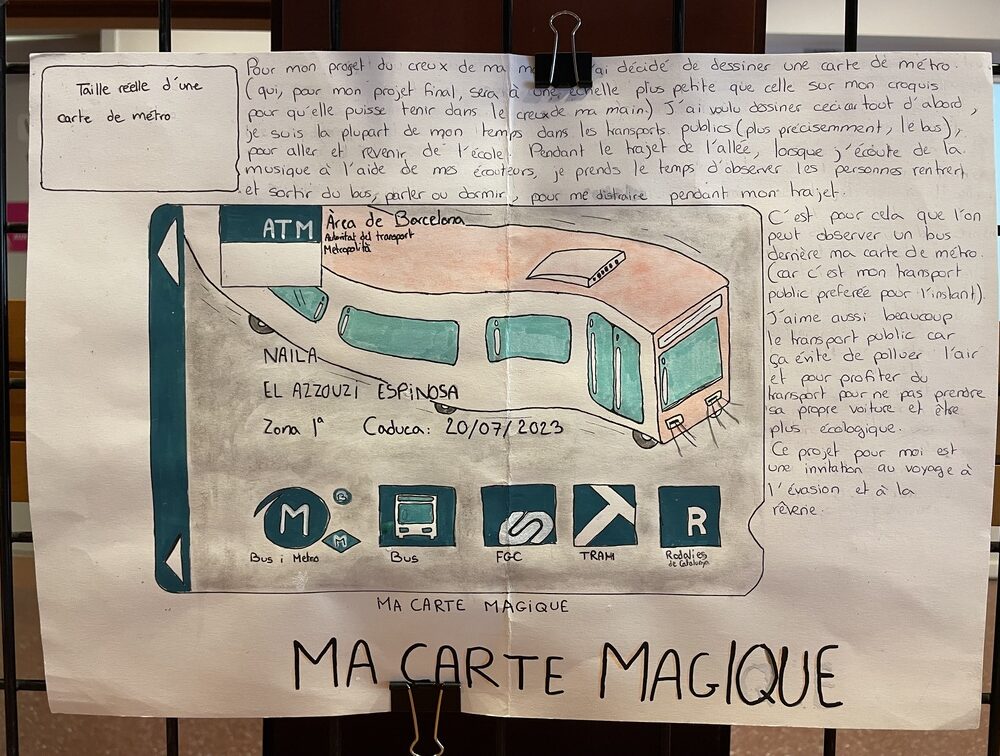 Taille réelle d'une
carte de métro
Pour mon projet du creux de ma ma j'ai décidé de dessiner une carte de métro.
(qui, pour mon projet final, sera à une échelle plus petite que celle sur mon croquis
pour qu'elle puisse tenir dans le creux de ma main) J'ai voulu dessiner ceci car tout d'abord,
je suis la plupart de mon temps dans les transports publics (plus précisemment, le bus),
pour aller et revenir de l'école. Pendant le trajet de l'allée, lorsque j'écoute de la
musique à l'aide de mes écouteurs, je prends le temps d'observer les personnes rentrer
et sortir du bus, parler ou dormir, pour me distraire pendant mon trajet.
C'est pour cela que l'on
peut observer un bus
derrière ma carte de métro.
(car c'est mon transport
public preferée pour l'instant).
J'aime aussi beaucoup
le transport public car
ça évite de polluer l'air
et pour profiter du
transport pour ne pas prendre
sa propre voiture et être
plus écologique.
Ce projet pour moi est
une invitation au voyage à
l'évasion et à la
rêverie.
ATM
Àrea de Barcelona
Autoritat del transport
Metropolità
NAILA
EL AZZOUZI ESPINOSA
Zona 1ª Caduca: 20/07/2023
M
M
R
Bus i Metro
Bus
FGC
TRAM
Rodalies
de Catalunya
MA CARTE MAGIQUE
MA CARTE MAGIQUE